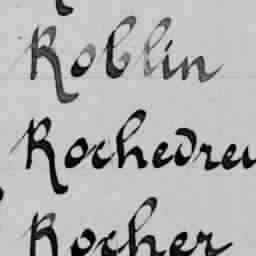 Roblin
Rochedreu
Rocher